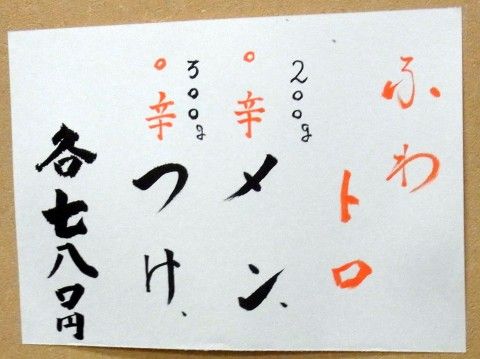 ふわ
トロ
200g
○辛メン、
300g
○辛つけ、
各七八〇円